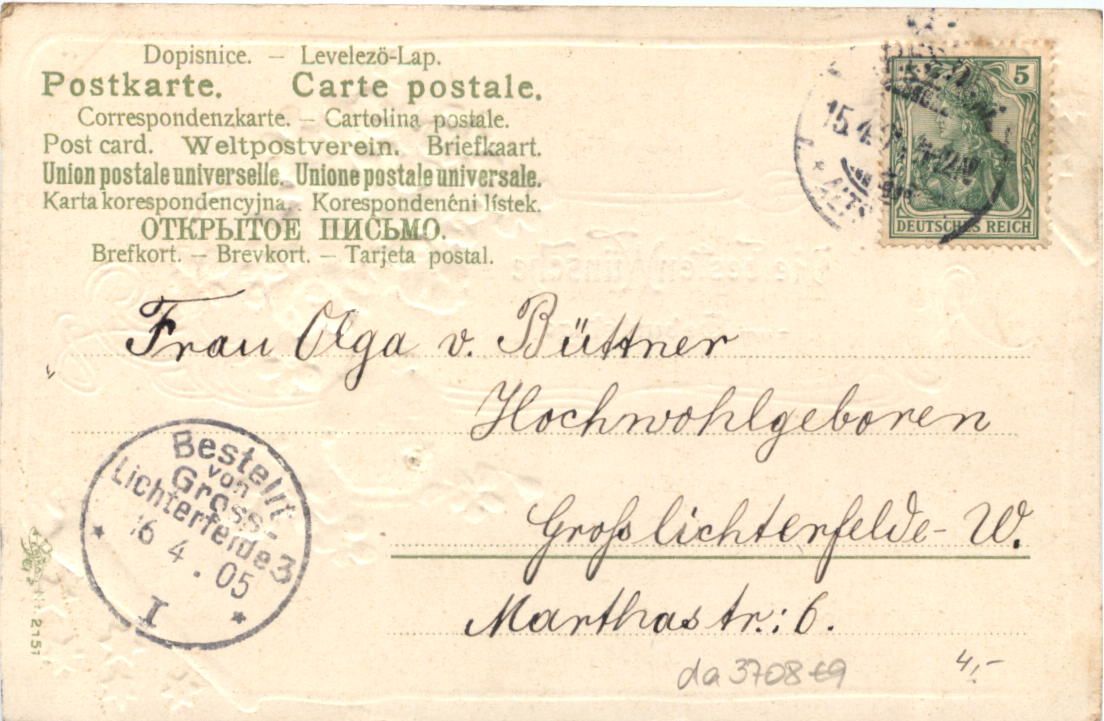 Dopisnice. – Levelező-Lap.
Postkarte. Carte postale.
Correspondenzkarte. – Cartolina postale.
Post card. Weltpostverein. Briefkaart.
Union postale universelle. Unione postale universale.
Karta korespondencyjna. Korespondenční lístek.
ОТКРЫТОЕ ПИСЬМО.
Brefkort. – Brevkort. – Tarjeta postal.
5
DEUTSCHES REICH
15.4
Frau Olga v. Büttner
Hochwohlgeboren
Großlichterfelde-W.
Marthastr.: 6.
Bestellt
von
Gross-
Lichterfelde 3
16 4. 05
I
2151
4,-
da3708t9